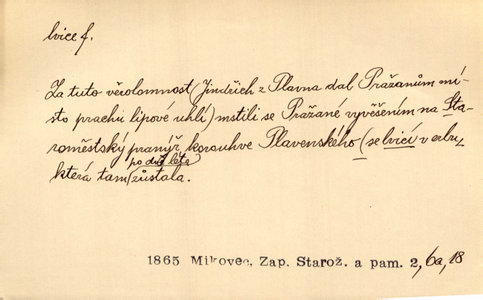 lvice f.
Za tuto věrolomnost (Jindřich z Plavna dal Pražanům mí-
sto prachu lipové uhlí) mstili se Pražané vyvěšením na Sta-
roměstský pranýř korouhve Plavenského (se lvicí v erbu,
po dvě léta
která tam zůstala.
1865 Mikovec, Zap. Starož. a pam. 2, 6a, 18